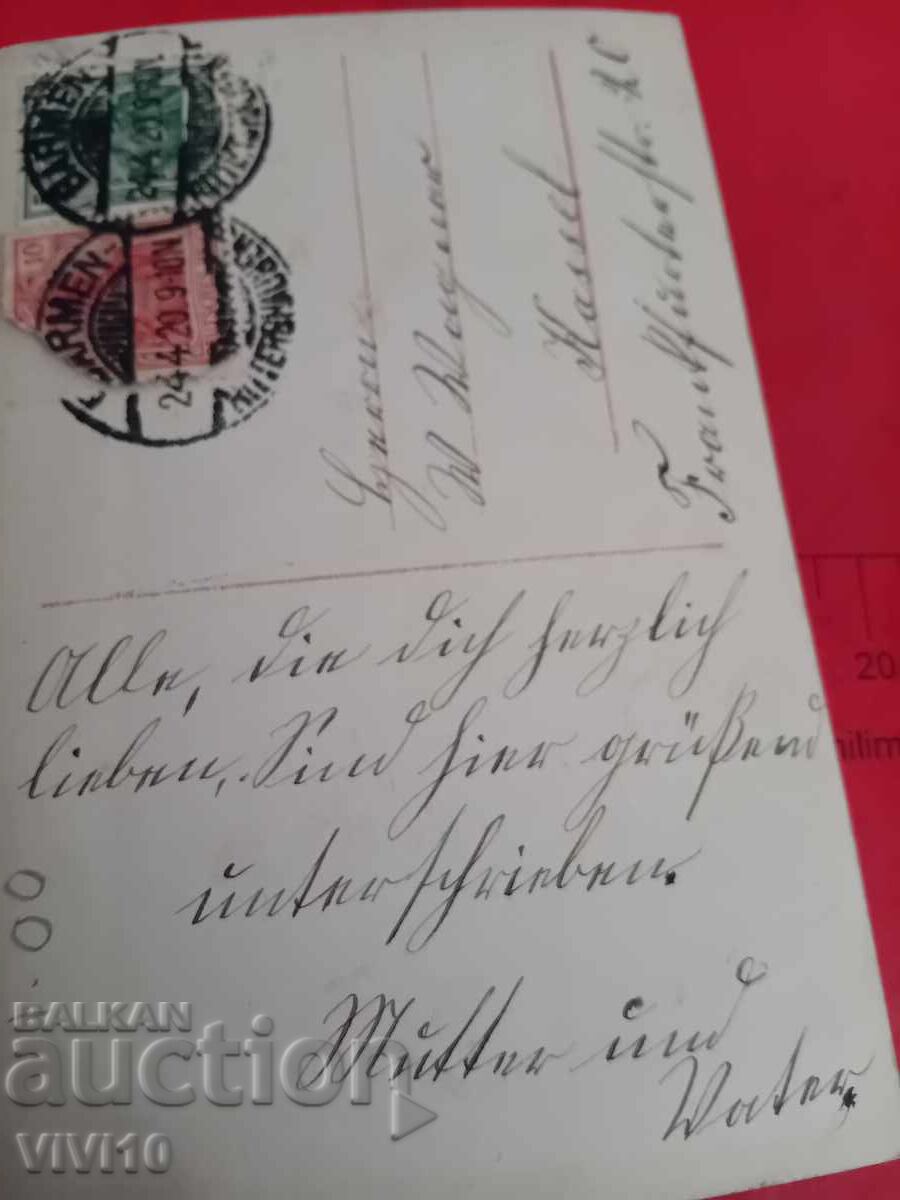 BARMEN-
24.4.20.9-10V.
BARMEN-
24.4.20.9-10V.
10
Herrn
W Wagener
Kassel
Frankfurterstr.
Alle, die dich herzlich
lieben, Sind hier grüßend
unterschrieben.
Mutter und
Vater.
1.00
20
BALKAN
auction
VIVI10